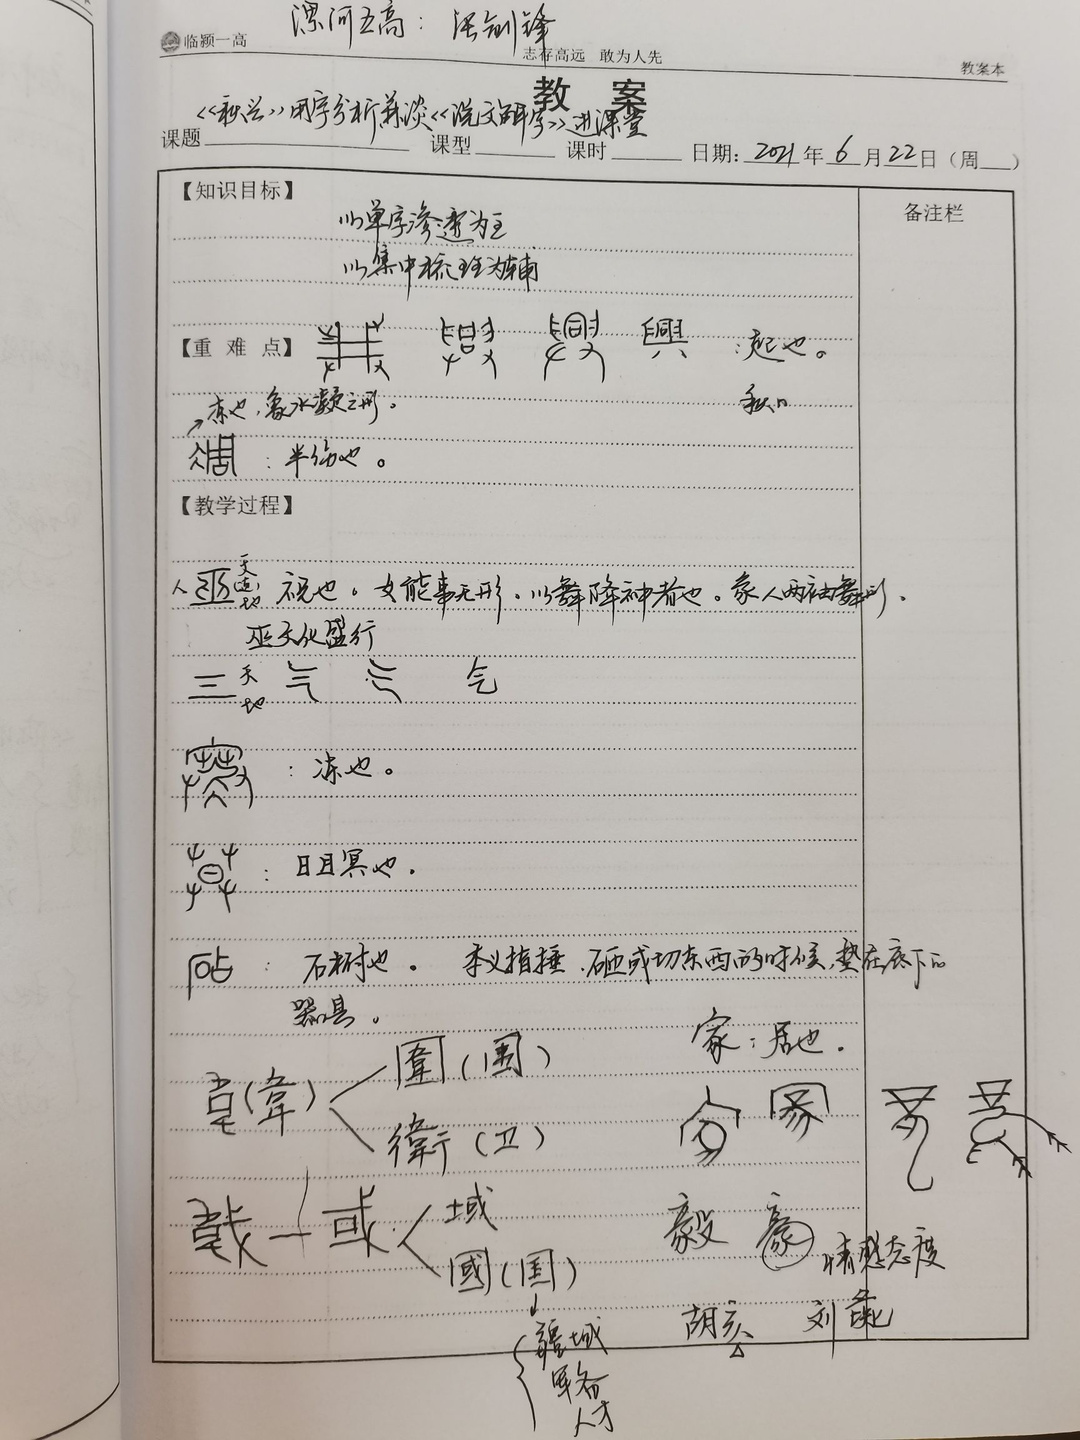 漯河五高：张剑锋
临颍一高
志存高远 敢为人先
教案本
教 案
《秋兴》用字分析兼谈《说文解字》进课堂
课题 课型 课时 日期：2021年6月22日（周 ）
【知识目标】
备注栏
以单字渗透为主
以集中梳理为辅
【重 难 点】 興 ：起也。
冻也，象水凝之形。
凋 ：半伤也。
【教学过程】
人 巫 天 地 祝也。女能事无形，以舞降神者也。象人两袖舞形。
巫文化盛行
三 天 地 气
：冻也。
：日且冥也。
砧 ：石柎也。 本义指捶、砸或切东西的时候，垫在底下的
器具。
家：居也。
（韋） 圍（围）
衛（卫）
或 域
國（国）
毅 豪 情感态度
胡亥 刘彘
疆域
军备
人才